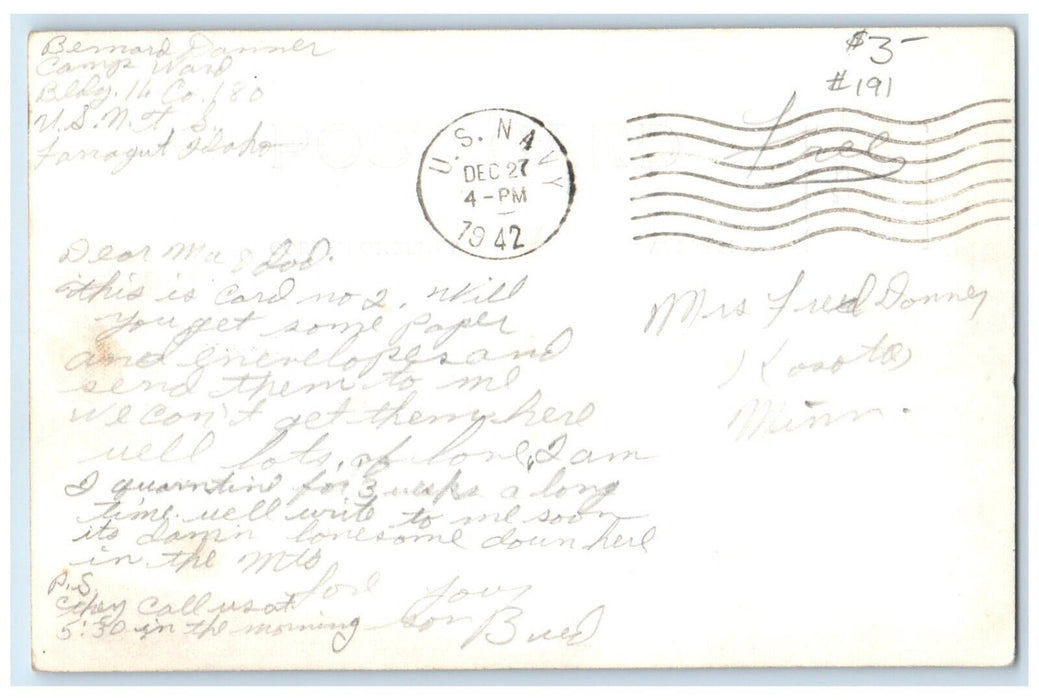 Bernard Danner
Camp Ward
Bldg. 14 Co. 180
U.S.N.T.S.
Faragut Idaho
$3-
#191
U.S. NAVY
DEC 27
4-PM
1942
Free
Dear Ma & Dad.
this is card no 2. Will
you get some paper
and envelopes and
send them to me
we can't get them here
well lots of love, I am
I quarntine for 3 weeks a long
time. well write to me soon
its damn lonesome down here
in the Mts
love your
son
P.S.
they call us at
5:30 in the morning
Mrs Fred Danner
Kasota
Minn.